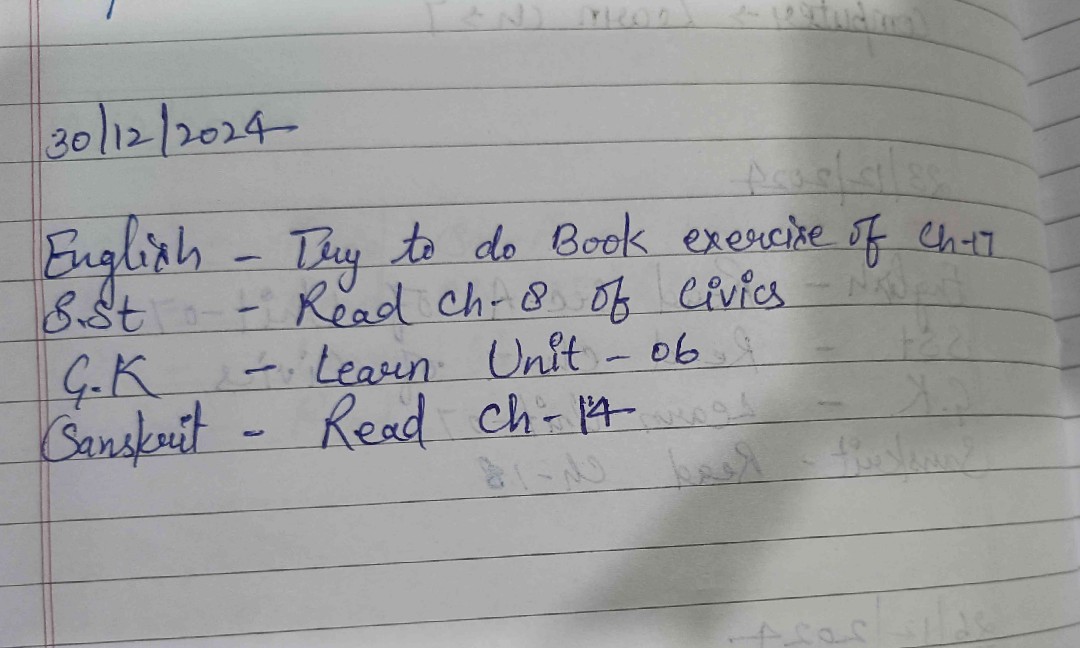 30/12/2024
English - Try to do Book exercise of Ch-17
S.St - Read Ch-8 of Civics
G.K - Learn Unit - 06
Sanskrit - Read Ch-14